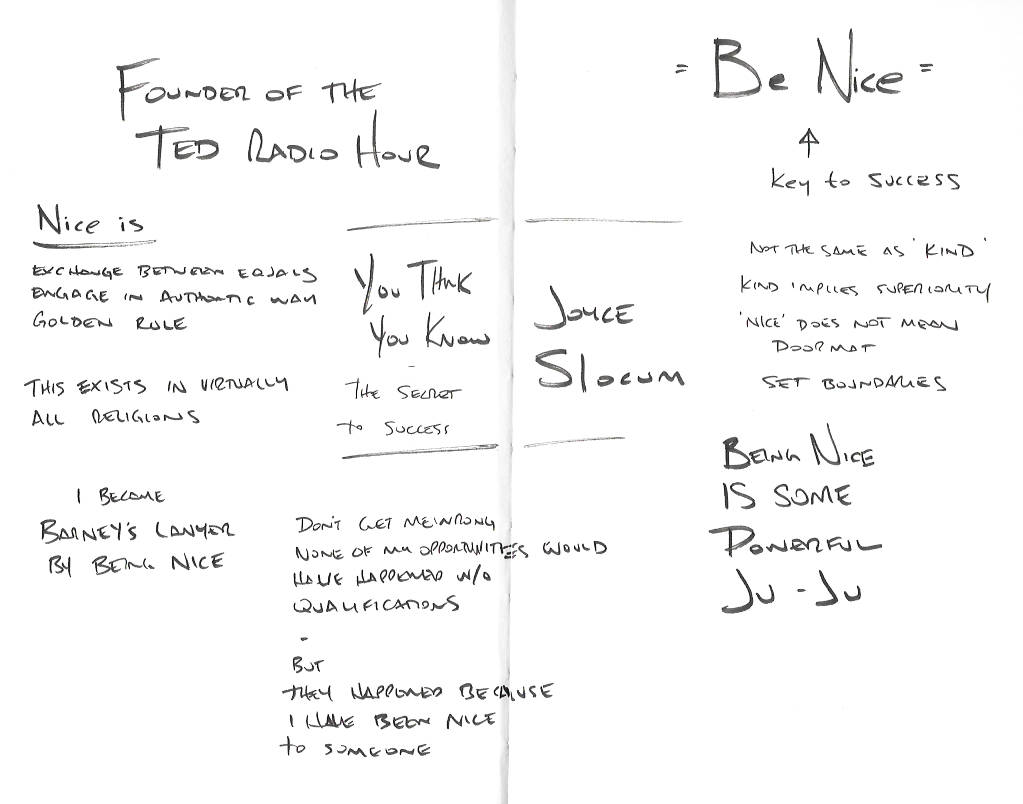 FOUNDER OF THE
TED RADIO HOUR
Nice is
EXCHANGE BETWEEN EQUALS
ENGAGE IN AUTHENTIC WAY
GOLDEN RULE
THIS EXISTS IN VIRTUALLY
ALL RELIGIONS
I BECAME
BARNEY'S LAWYER
BY BEING NICE
YOU THINK
YOU KNOW
-
THE SECRET
to SUCCESS
JOYCE
SLOCUM
DON'T GET ME WRONG
NONE OF MY OPPORTUNITIES WOULD
HAVE HAPPENED W/O
QUALIFICATIONS
-
BUT
THEY HAPPENED BECAUSE
I HAVE BEEN NICE
to SOMEONE
= Be Nice =
↑
Key to SUCCESS
NOT THE SAME AS 'KIND'
KIND IMPLIES SUPERIORITY
'NICE' DOES NOT MEAN
DOORMAT
SET BOUNDARIES
BEING NICE
IS SOME
POWERFUL
JU-JU